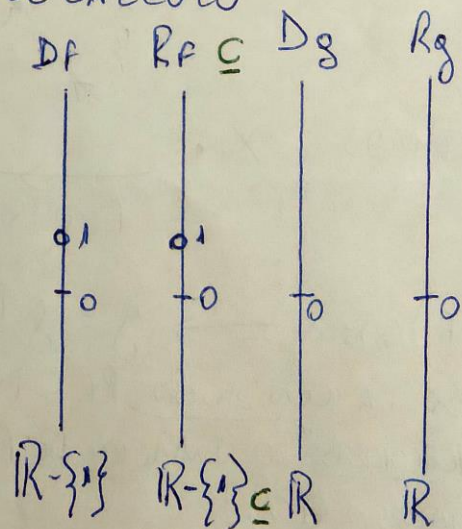 Df Rf ⊆ Dg Rg
1 1
0 0 0 0
ℝ-{1} ℝ-{1} ⊆ ℝ ℝ